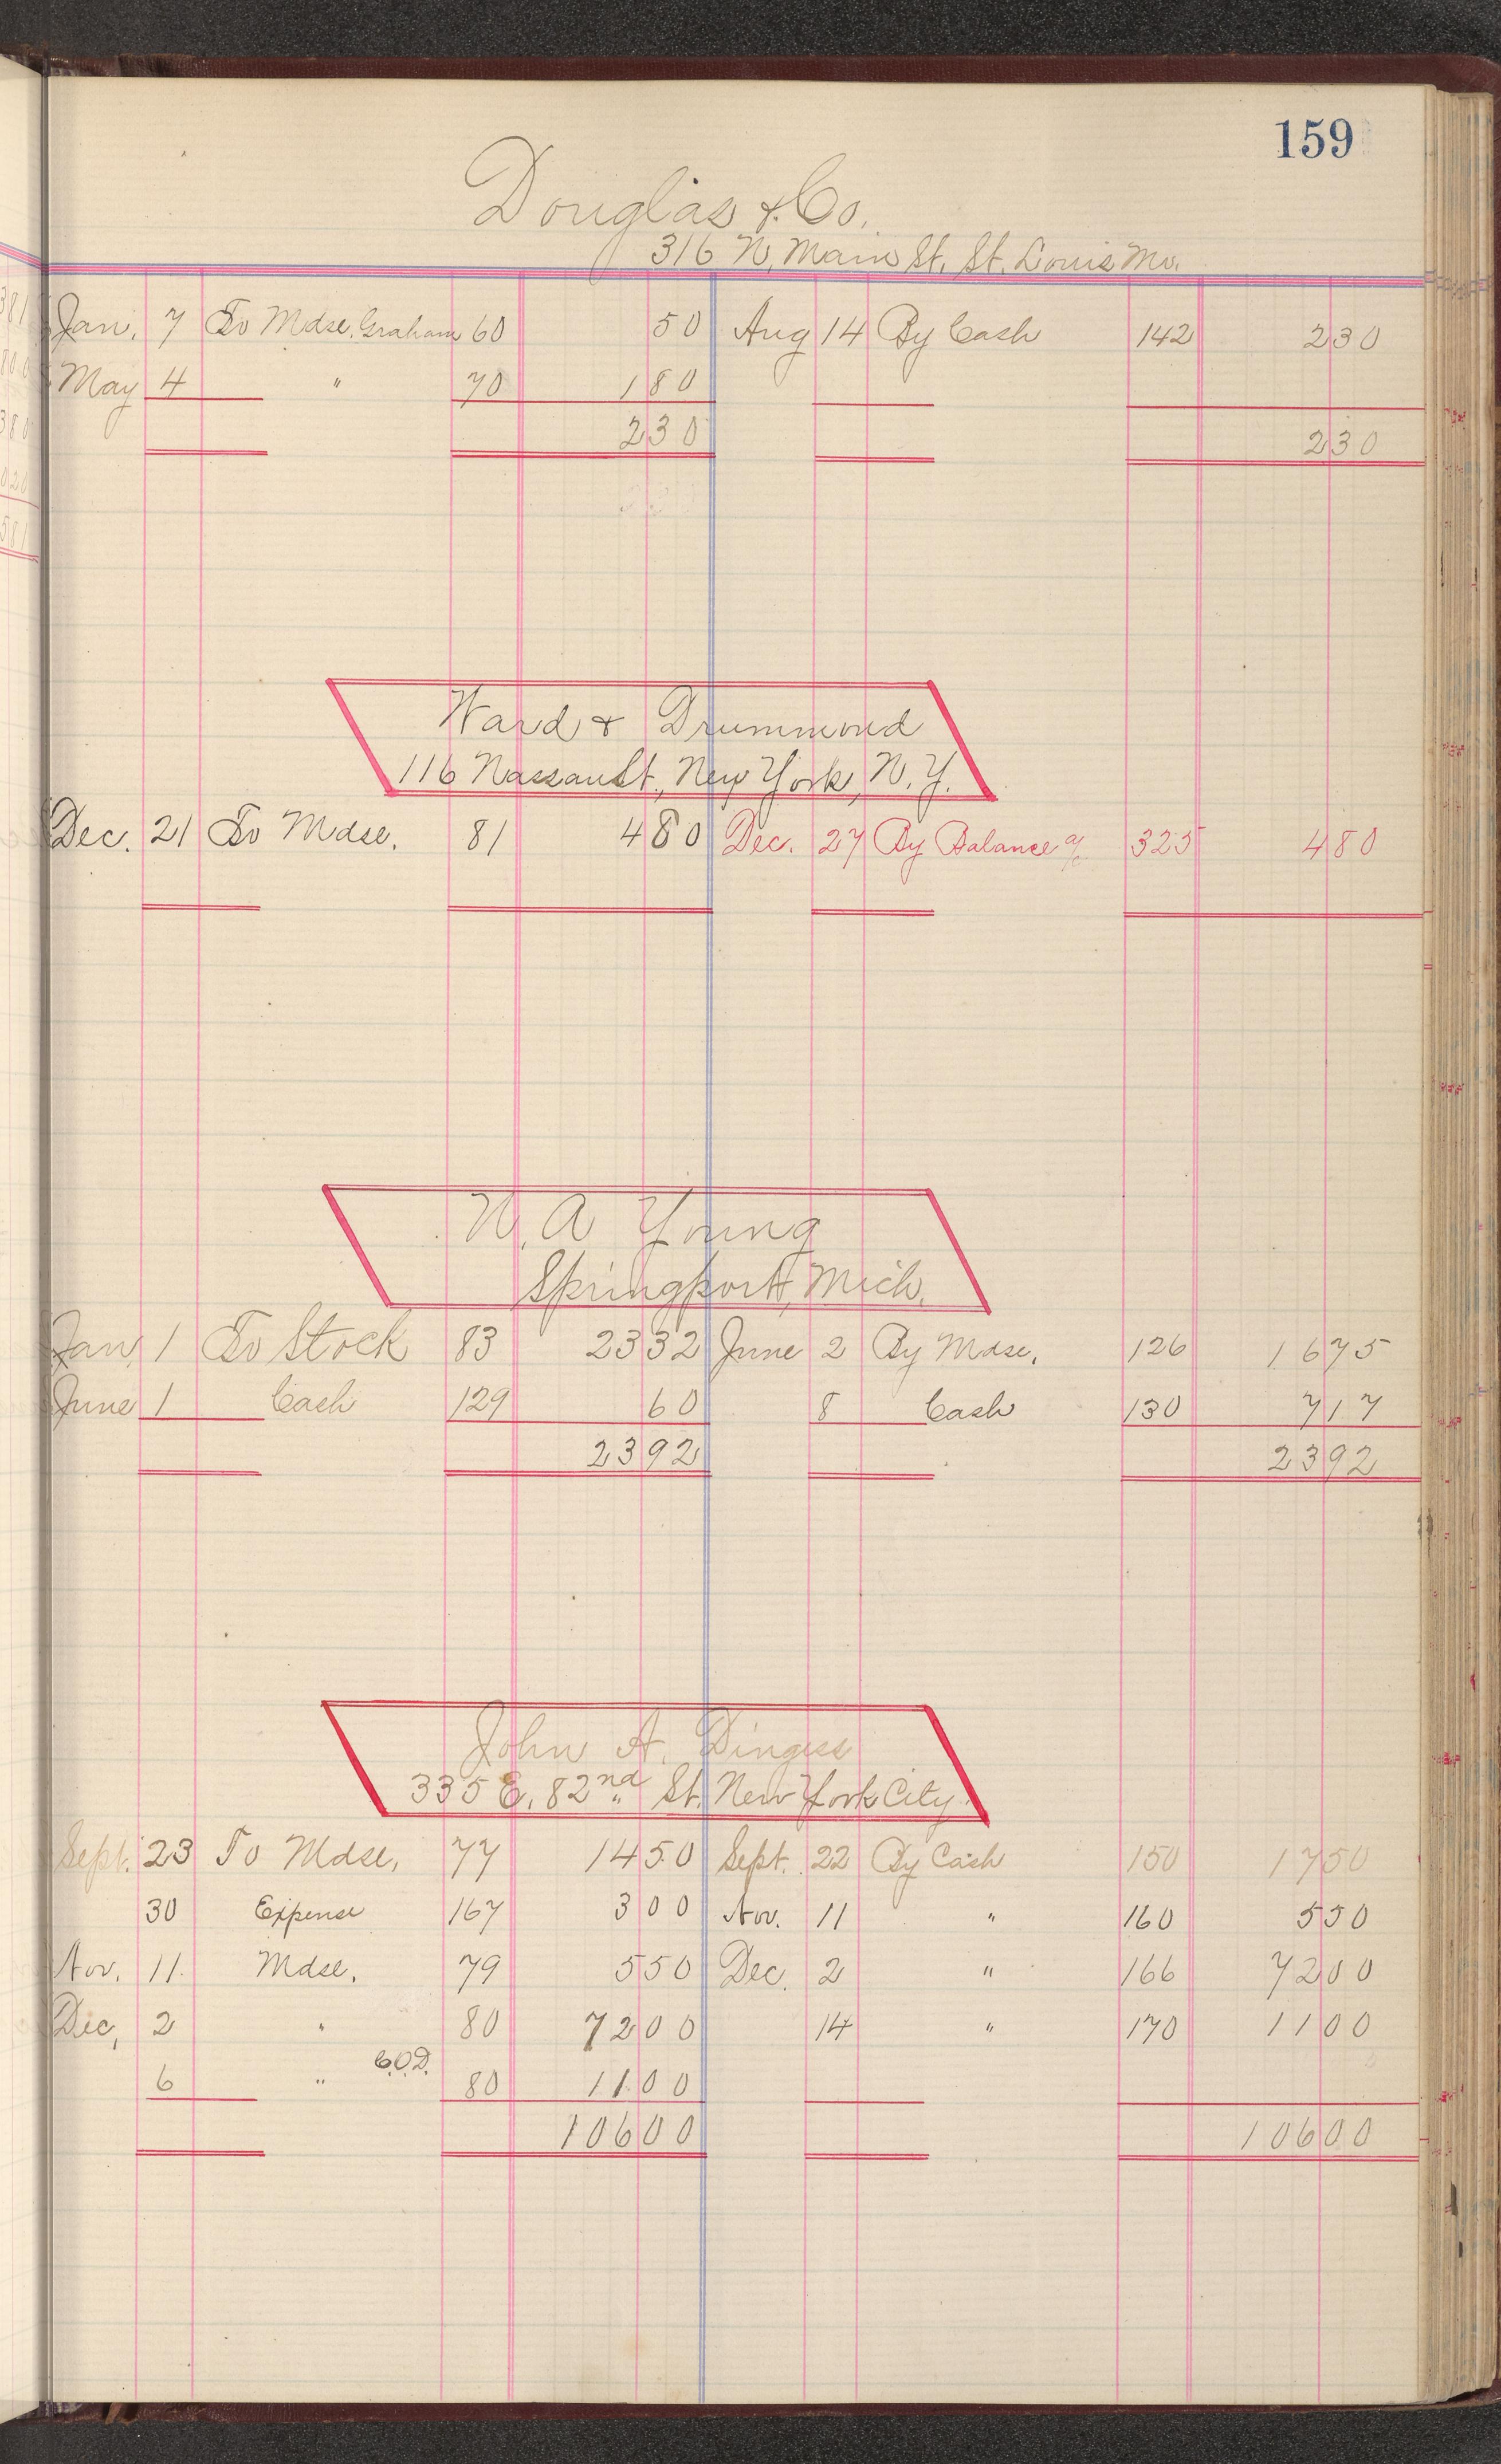 159
Douglas & Co.
316 N. Main St. St. Louis Mo.
Jan. 7 To Mdse. Graham 60 50 Aug 14 By Cash 142 230
May 4 " 70 180
230 230
Ward & Drummond
116 Nassau St., New York, N.Y.
Dec. 21 To Mdse. 81 480 Dec. 27 By Balance a/c 325 480
W. A Young
Springport, Mich.
Jan, 1 To Stock 83 2332 June 2 By Mdse. 126 1675
June 1 Cash 129 60 8 Cash 130 717
2392 2392
John A. Dingess
335 E. 82nd St. New York City.
Sept. 23 To Mdse, 77 1450 Sept. 22 By Cash 150 1750
30 Expense 167 300 Nov. 11 " 160 550
Nov. 11. Mdse. 79 550 Dec. 2 " 166 7200
Dec, 2 " 80 7200 14 " 170 1100
6 " C.O.D. 80 1100
10600 10600